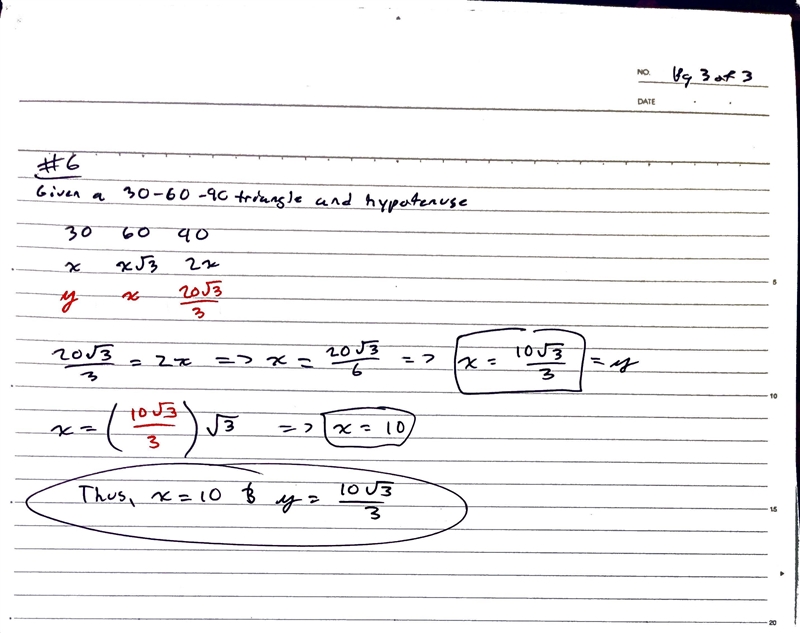 NO. Pg 3 of 3
DATE
#6
Given a 30-60-90 triangle and hypotenuse
30 60 90
x x√3 2x
y x 20√3/3
20√3/3 = 2x => x = 20√3/6 => x = 10√3/3 = y
5
10
x = (10√3/3) √3 => x = 10
Thus, x = 10 & y = 10√3/3
15
20